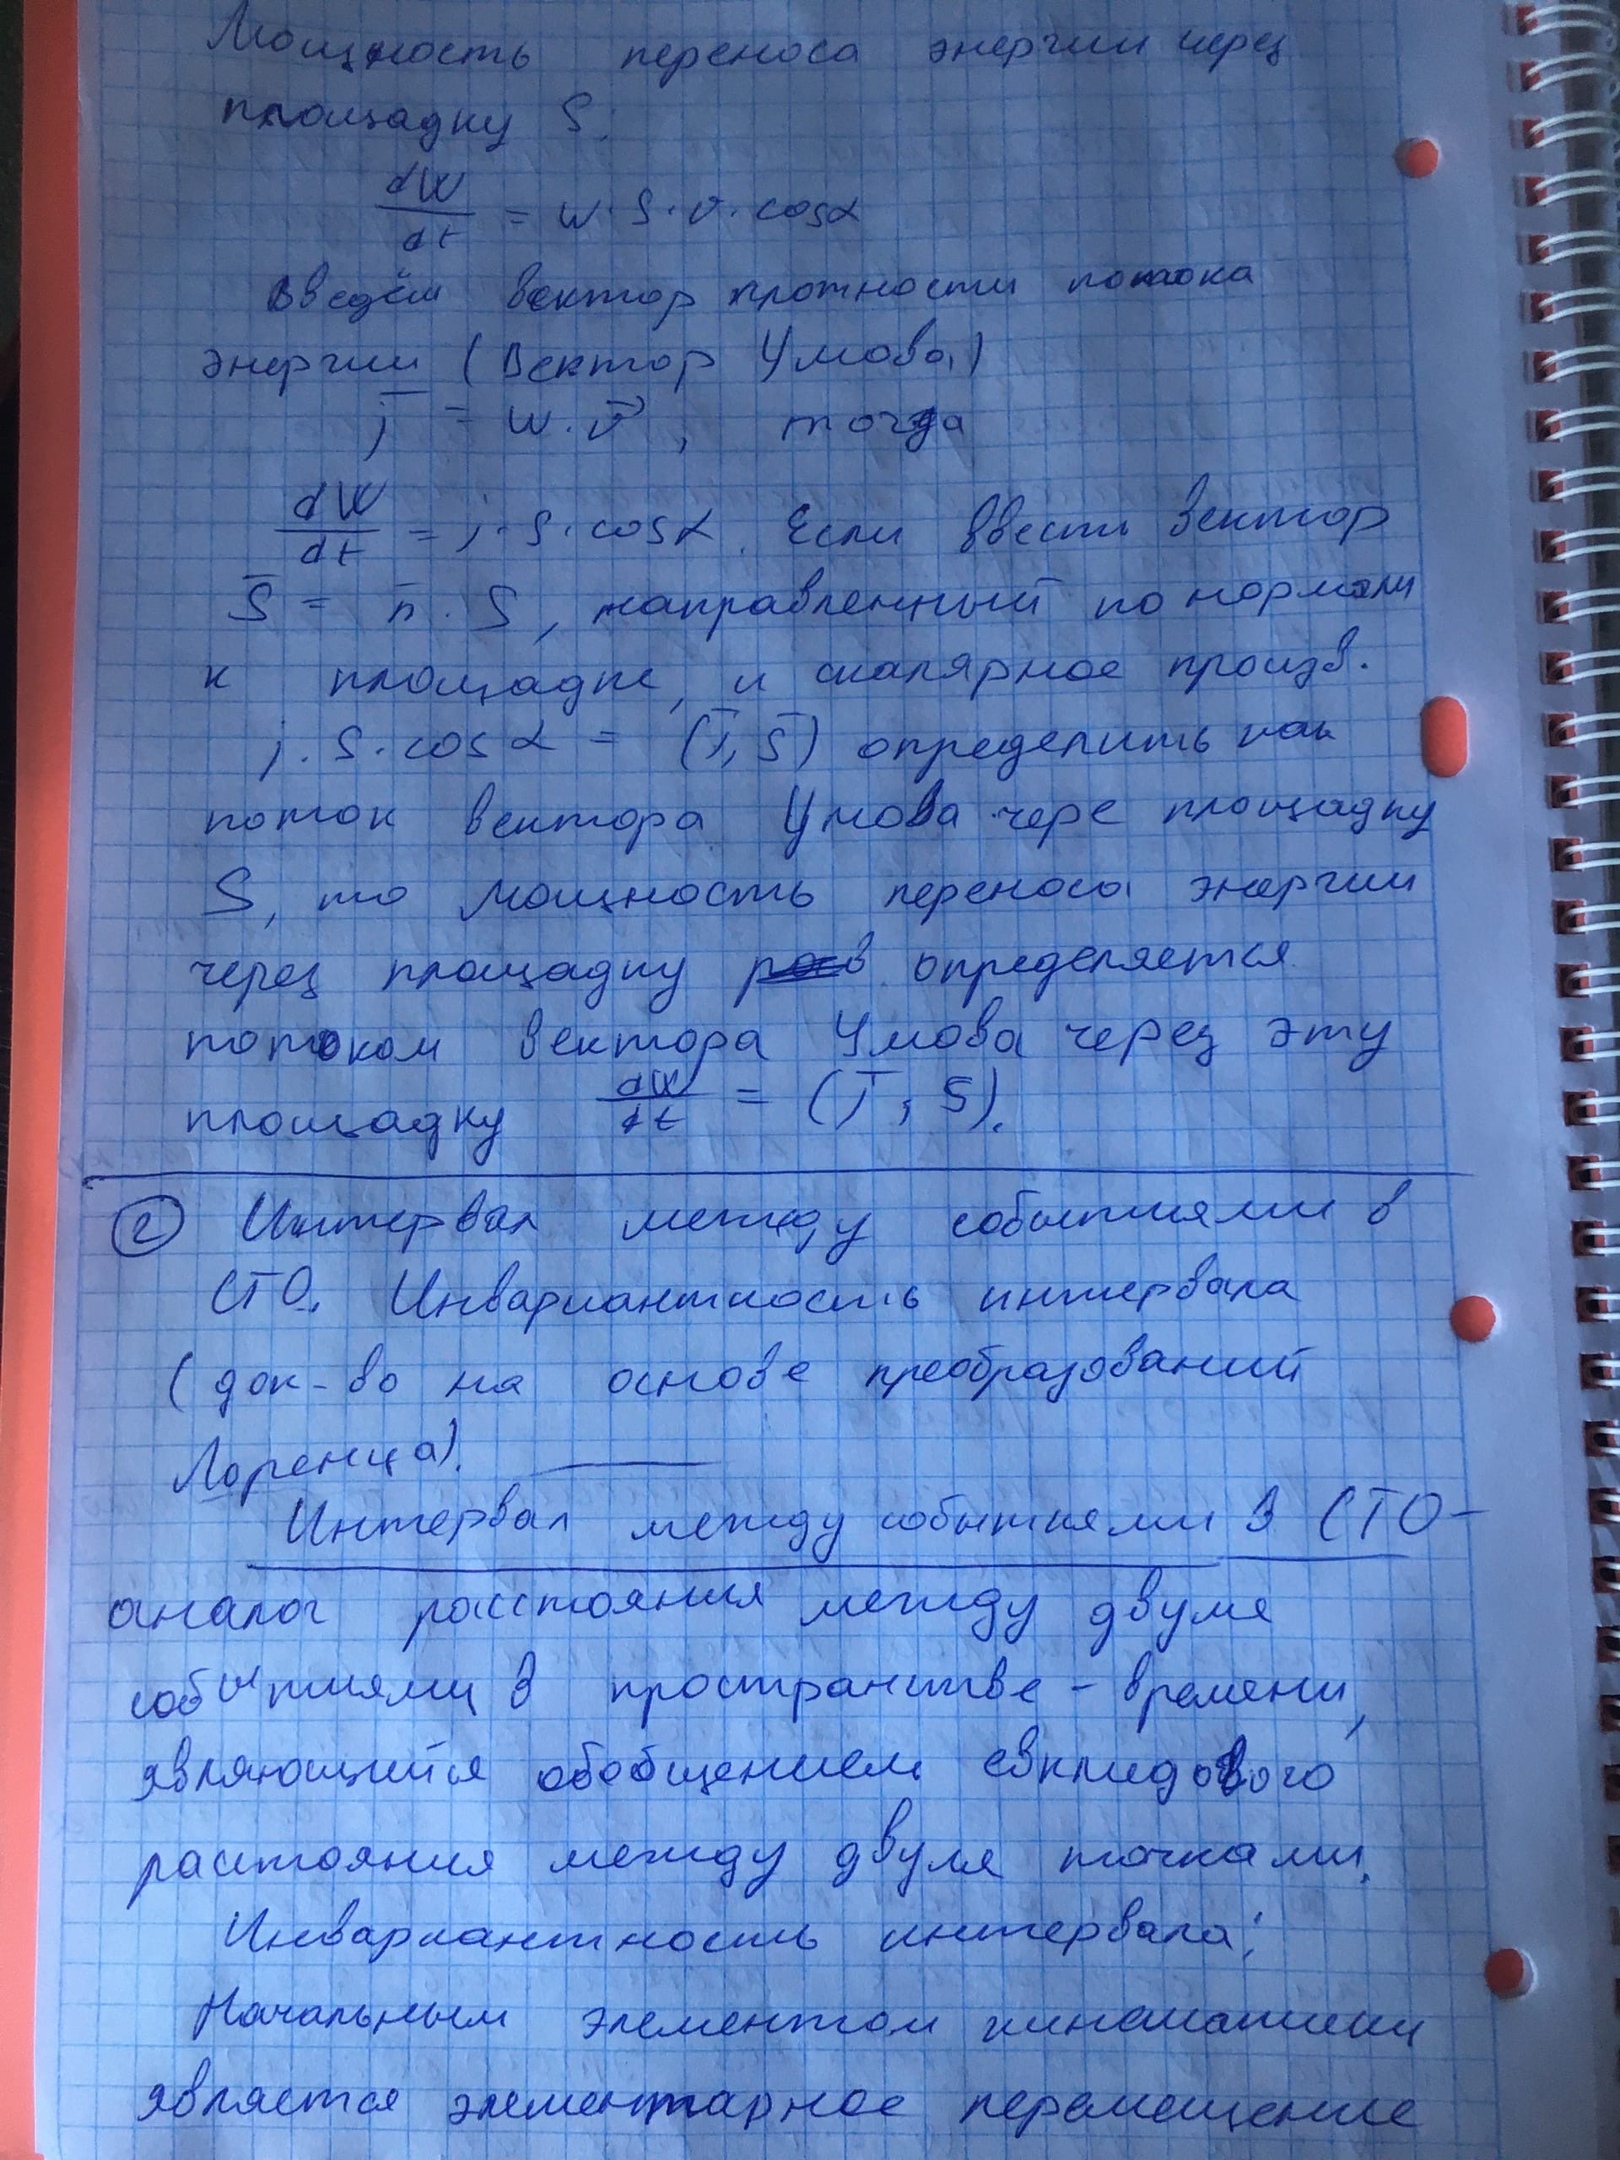 Мощность переноса энергии через
площадку S.
dW/dt = w·S·v·cosα
Введём вектор плотности потока
энергии (Вектор Умова)
j̄ = w·v⃗, тогда
dW/dt = j·S·cosα. Если ввести вектор
S̄ = n̄·S, направленный по нормали
к площадке, и скалярное произв.
j·S·cosα = (j̄, S̄) определить как
поток вектора Умова чере площадку
S, то мощность переноса энергии
через площадку определяется
потоком вектора Умова через эту
площадку dW/dt = (j̄, S).
② Интервал между событиями в
СТО. Инвариантность интервала
(док-во на основе преобразований
Лоренца).
Интервал между событиями в СТО –
аналог расстояния между двумя
событиями в пространстве-времени,
являющийся обобщением евклидового
расстояния между двумя точками.
Инвариантность интервала:
Начальным элементом кинематики
является элементарное перемещение